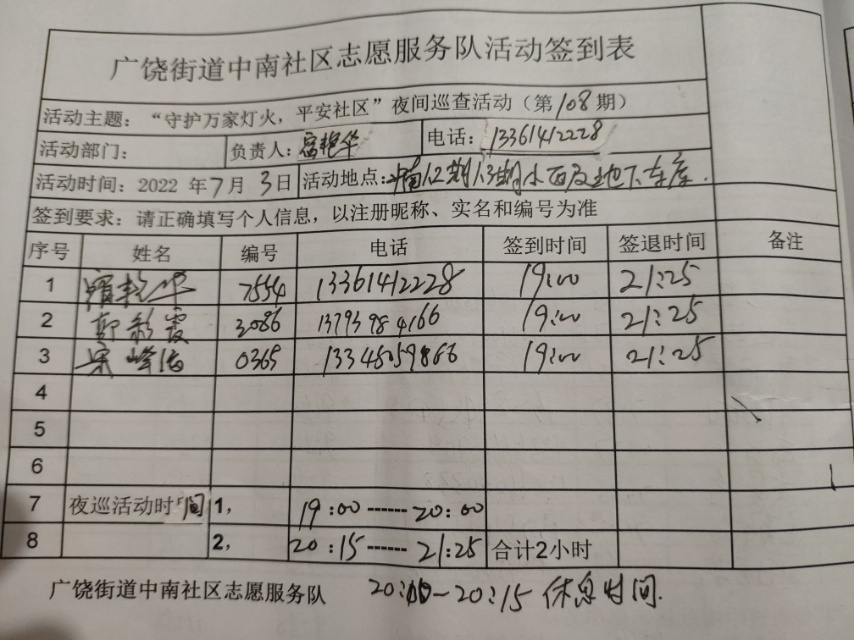 广饶街道中南社区志愿服务队活动签到表
活动主题：“守护万家灯火，平安社区”夜间巡查活动（第108期）
活动部门： 负责人：宿艳华 电话：13361412228
活动时间：2022 年7月 3日 活动地点：中南12期13期小区及地下车库.
签到要求：请正确填写个人信息，以注册昵称、实名和编号为准
序号 姓名 编号 电话 签到时间 签退时间 备注
1 宿艳华 7554 13361412228 19:00 21:25
2 郭彩霞 3086 13793984166 19:00 21:25
3 宋峰 0365 19:00 21:25
4
5
6
7 夜巡活动时间 1， 19:00------20:00
8 2， 20:15------21:25 合计2小时
广饶街道中南社区志愿服务队 20:00—20:15 休息时间.